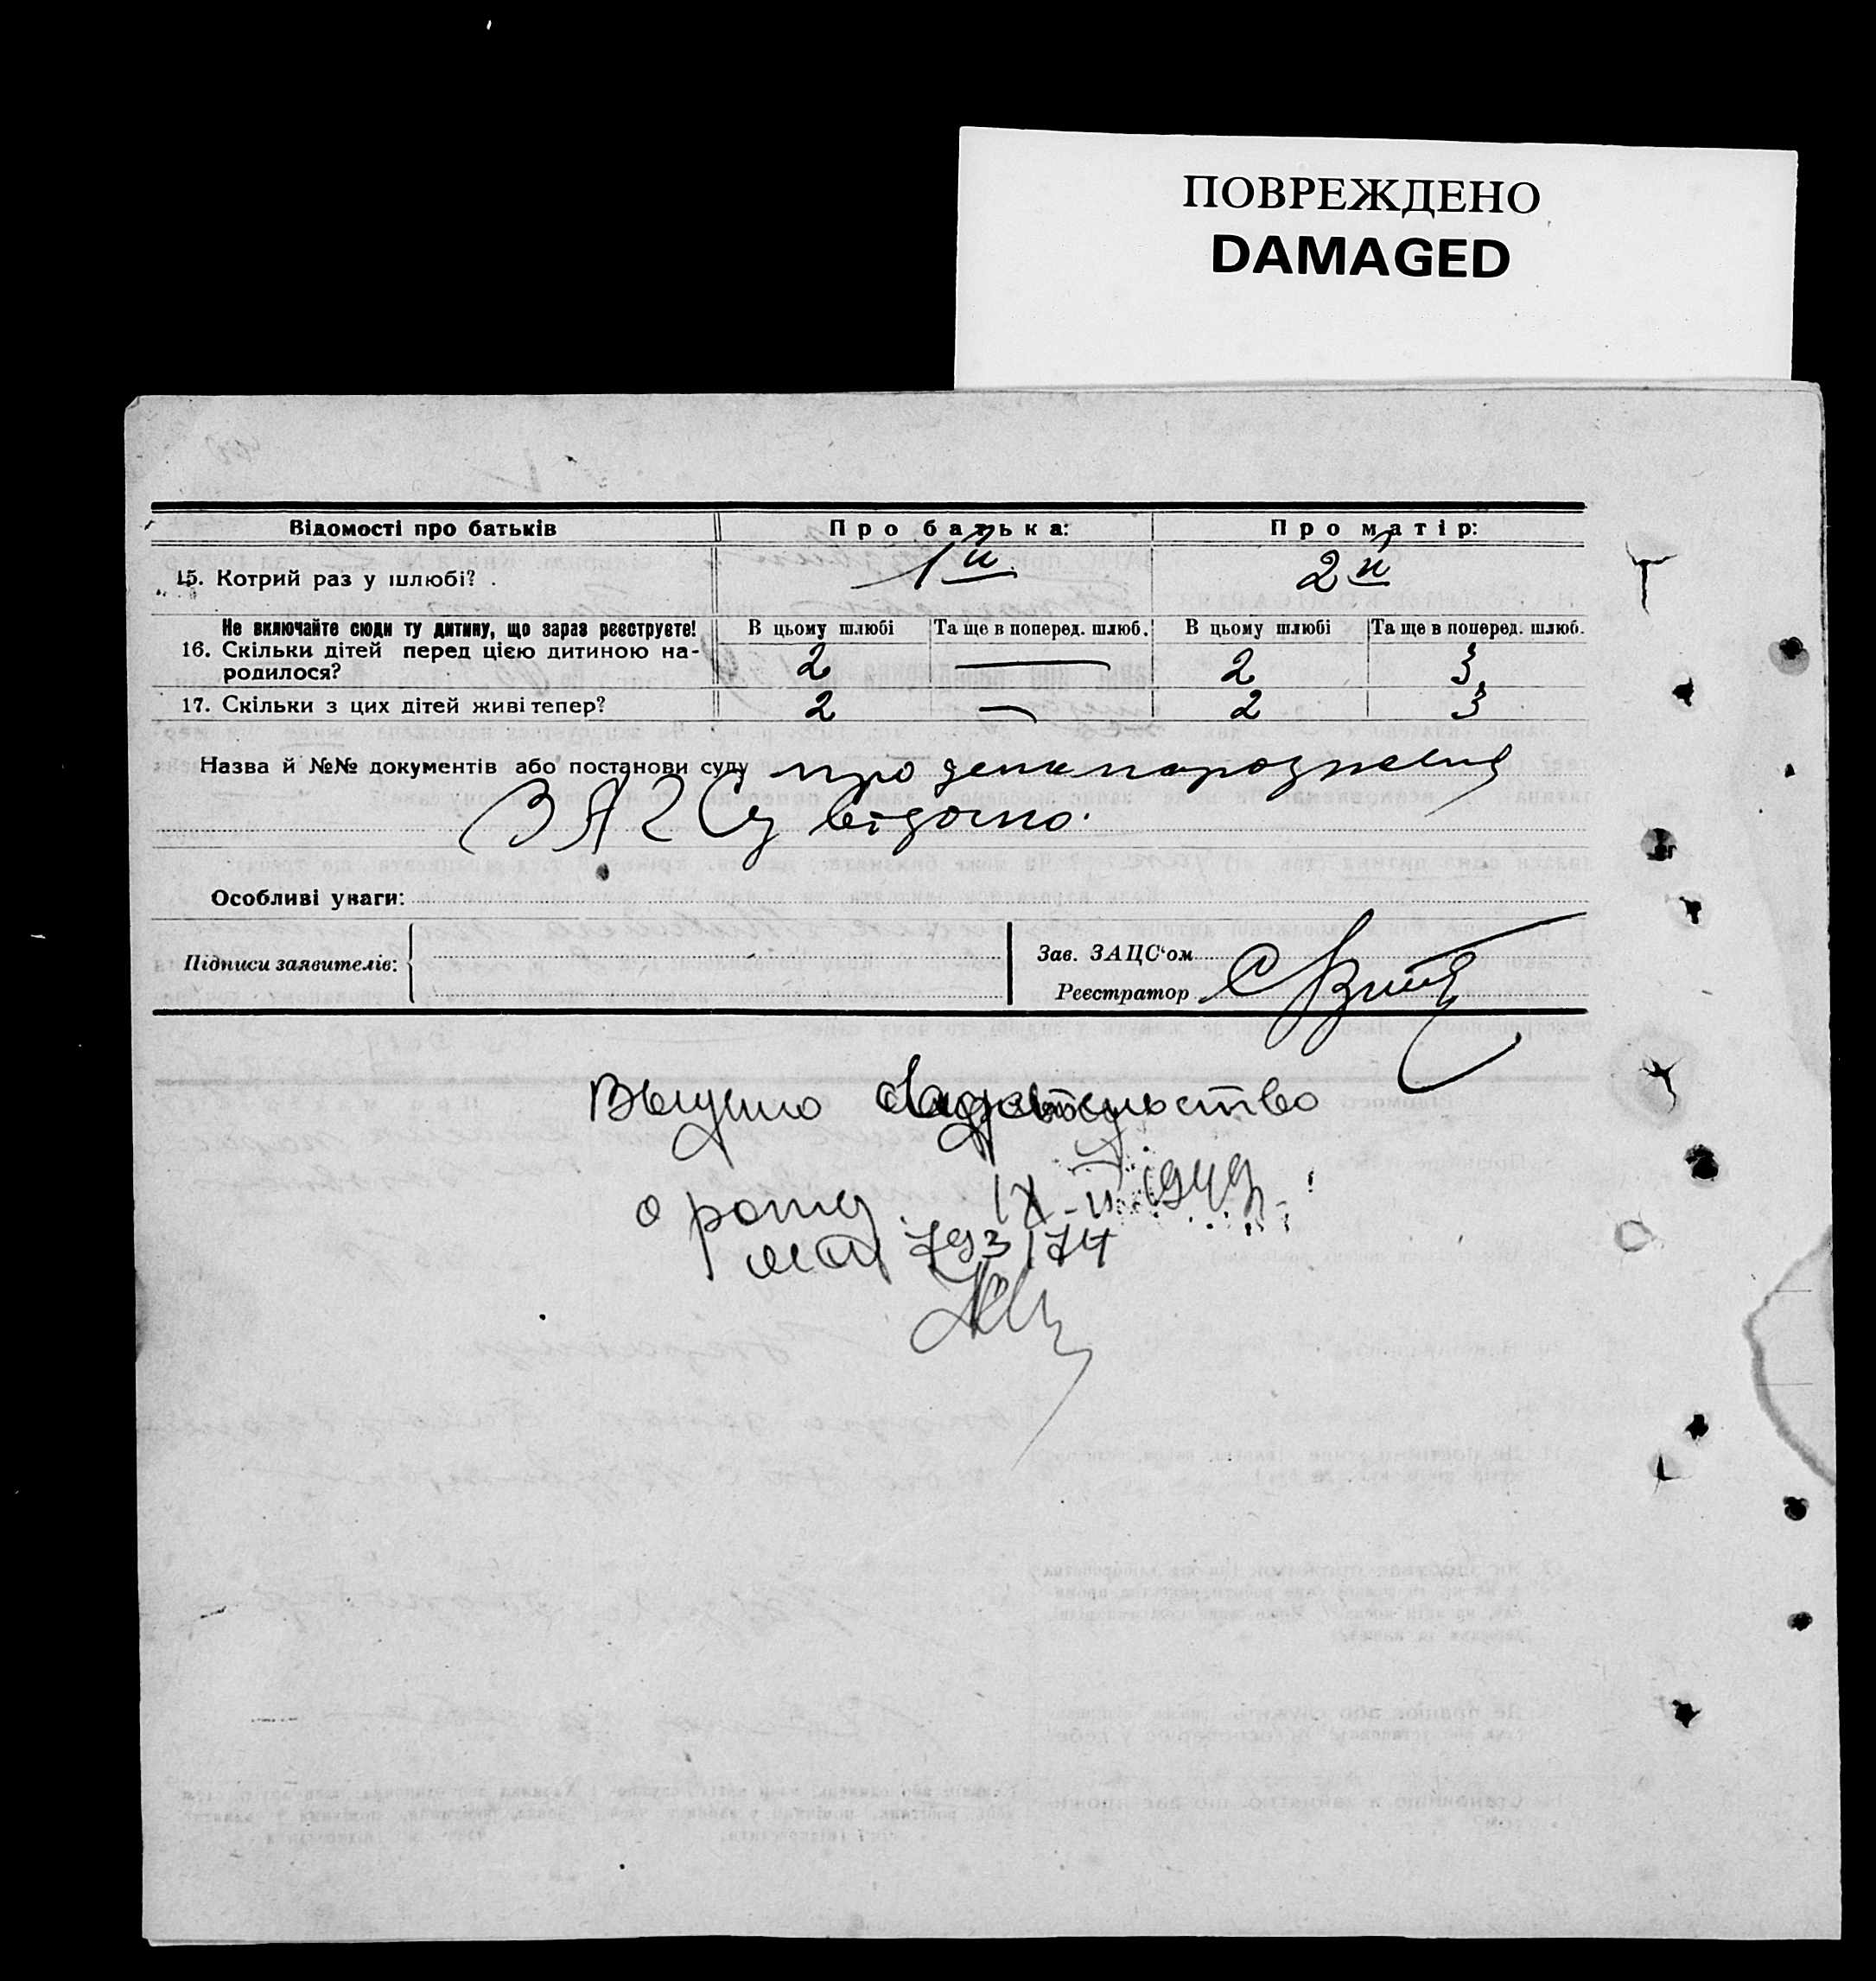 ПОВРЕЖДЕНО
DAMAGED
Відомості про батьків Про батька: Про матір:
15. Котрий раз у шлюбі? 1й 2й
Не включайте сюди ту дитину, що зараз реєструєте! В цьому шлюбі Та ще в поперед. шлюб. В цьому шлюбі Та ще в поперед. шлюб.
16. Скільки дітей перед цією дитиною на-
родилося? 2 — 2 3
17. Скільки з цих дітей живі тепер? 2 — 2 3
Назва й №№ документів або постанови суду про день народження
ЗАГСу відомо.
Особливі уваги:
Підписи заявителів:
Зав. ЗАЦС'ом
Реєстратор
Выдано
о рожд. IX 1949
793174